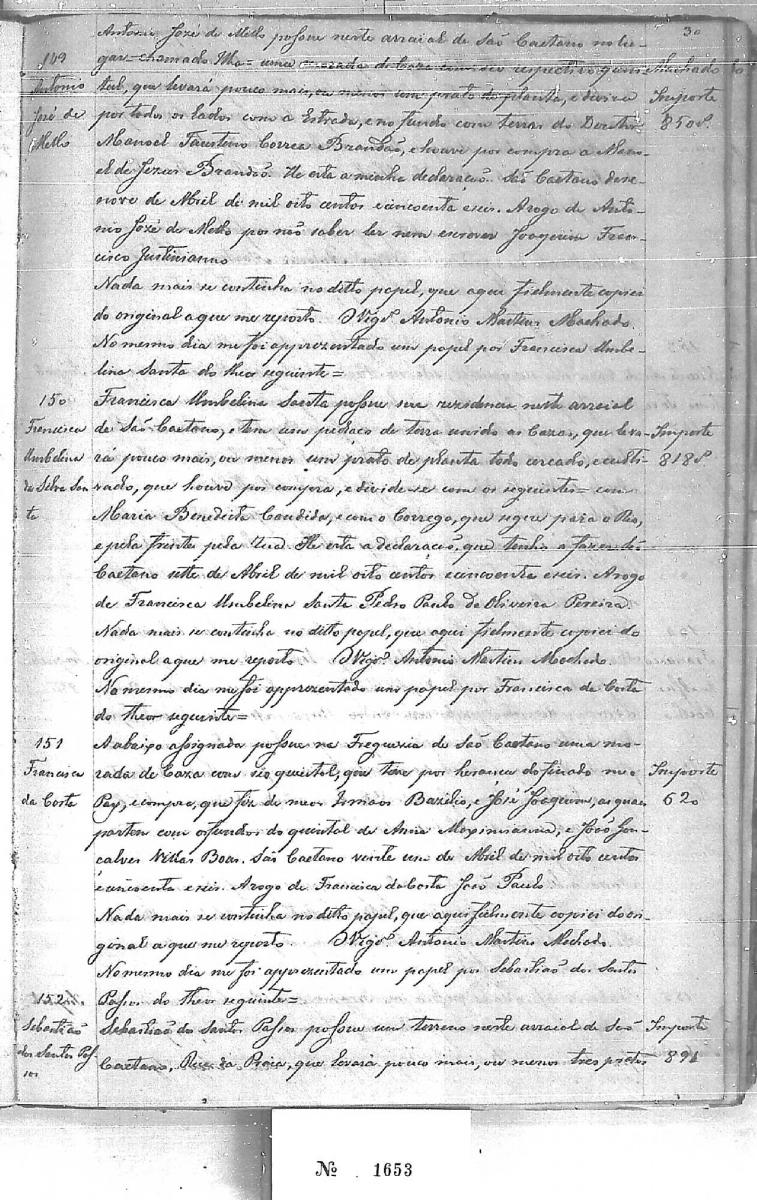 30
149
Antonio
José de
Mello
Antonio José de Mello possue neste arraial de São Caetano no lu-
gar = chamado Ilha = uma morada de Caza com seo respectivo quin-
tal, que levará pouco mais, ou menos um prato de planta, e divide
por todos os lados com a Estrada, e no fundo com terras do Doutor
Manoel Faustino Correa Brandão, e houve por compra a Mano-
el de Jezus Brandão. He esta a minha declaração. São Caetano deze-
nove de Abril de mil oito centos e cincoenta e seis. Arogo de Anto-
nio José de Mello por não saber ler nem escrever Joaquim Fran-
cisco Justiniano
Machado
Importe
850rs.
Nada mais se continha no ditto papel, que aqui fielmente copiei
do original a que me reporto. O Vigrº. Antonio Martins Machado.
No mesmo dia me foi apprezentado um papel por Francisca Umbe-
lina Santa do theor seguinte =
150
Francisca
Umbelina
da Silva San-
ta
Francisca Umbelina Santa possue sua rezidencia neste arraial
de São Caetano, e tem um pedaço de terra unido as Cazas, que leva-
rá pouco mais, ou menos um prato de planta todo cercado, e culti-
vado, que houve por compra, e divide-se com os seguintes = com
Maria Benedicta Candida, e com o Corrego, que segue para o Rio,
e pela frente pela rua. He esta a declaração, que tenho a fazer. São
Caetano sette de Abril de mil oito centos e cincoenta e seis. Arogo
de Francisca Umbelina Santa Pedro Paulo de Oliveira Pereira.
Importe
818rs
Nada mais se continha no ditto papel, que aqui fielmente copiei do
original a que me reporto O Vigrº. Antonio Martins Machado.
No mesmo dia me foi apprezentado um papel por Francisca da Costa
do theor seguinte =
151
Francisca
da Costa
A abaixo assignada possue na Freguezia de São Caetano uma mo-
rada de Caza com seo quintal, que teve por herança do finado meo
Pay, e compra, que fiz de meos Irmãos Bazilio, e José Joaquim, as quaes
partem com os fundos do quintal de Anna Maximianna, e João Gon-
calves Villas Boas. São Caetano vinte um de Abril de mil oito centos
e cincoenta e seis. Arogo de Francisca da Costa João Paulo
Importe
620
Nada mais se continha no ditto papel, que aqui fielmente copiei do ori-
ginal a que me reporto. O Vigrº. Antonio Martins Machado.
No mesmo dia me foi apprezentado um papel por Sebastião dos Santos
Passos do theor seguinte =
152
Sebastião
dos Santos Pas-
sos
Sebastião dos Santos Passos possue um terreno neste arraial de São
Caetano, Rua da Praia, que levará pouco mais, ou menos tres pratos
Importe
891
Nº 1653